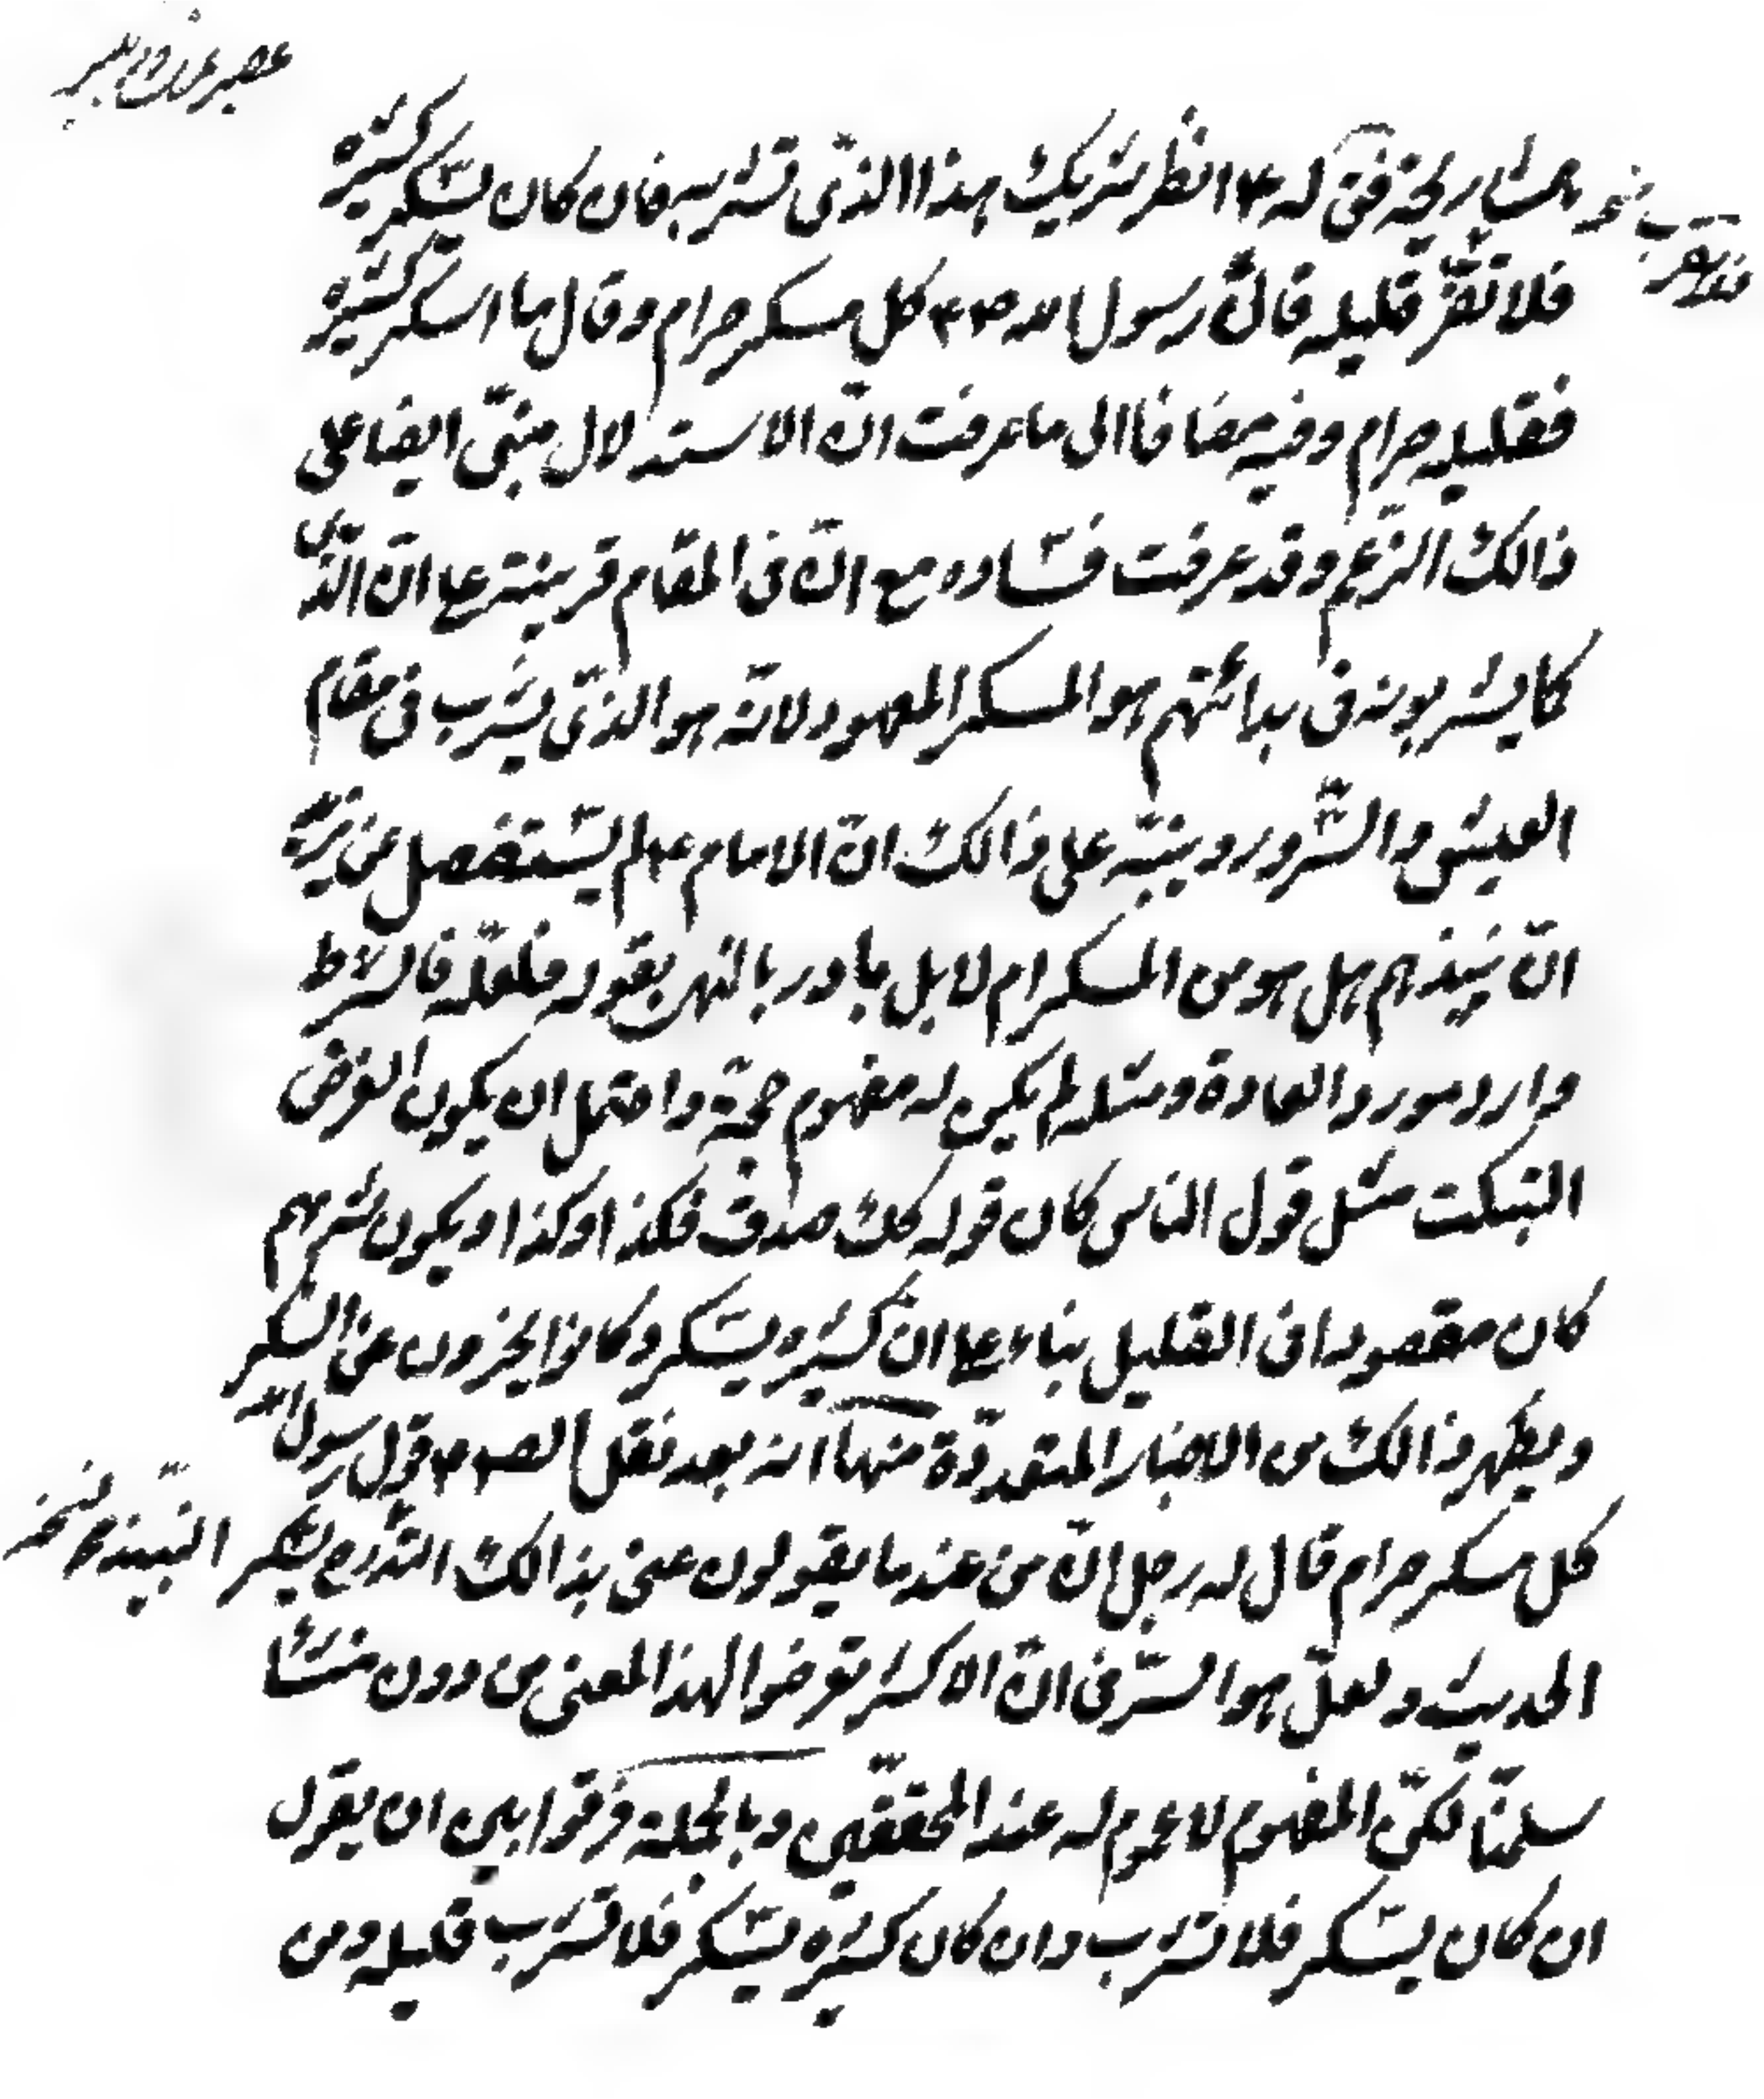 له ع انظر شربك هذا الذى تشربه فان كان يسكر كثيره
فلا تقرّ قليله فانّ رسول الله ص كل مسكر حرام وقال ما اسكر كثيره
فقليله حرام وفيه مضافا الى ما عرفت انّ الاستدلال مبنىّ ايضا على
ذالك الزّعم وقد عرفت فساده مع انّ فى المقام قرينة على انّ الذى
كا يشربونه فى هو المسكر المعهود لانّه هو الذى يشرب فى مقام
العيش والسّرور وينبّه على ذالك انّ الامام ع لم يستفصل عن
انّ نبيذهم هل هو من المسكر ام لا بل بادر بالنهى بقوله فالشرط
وارد مورد العادة ومثله لم يكن له مفهوم حجّة واحتمل ان يكون الغرض
التبكيت مثل قول الناس كان قولك صدق فكذا وكذا ويكون شربهم
كان مقصودا فى القليل بناء على انّ كثيره يسكر وكانوا عن السكر
ويظهر ذالك من الاخبار المتعدّدة منها انه بعد نقل الص قول رسول الله
كل مسكر حرام قال له رجل انّ من عندنا يقولون عنى بذالك القدح يسكر
الحديث ولعلّ هو السّر فى انّ الاكثر تعرضوا لهذا المعنى من دون منشأ
سلّمنا لكنّ المفهوم لا عموم له عند المحققين وبالجملة فرقوا بين ان يقول
ان كان يسكر فلا تشرب وان كان كثيره يسكر فلا تشرب قليله ومن